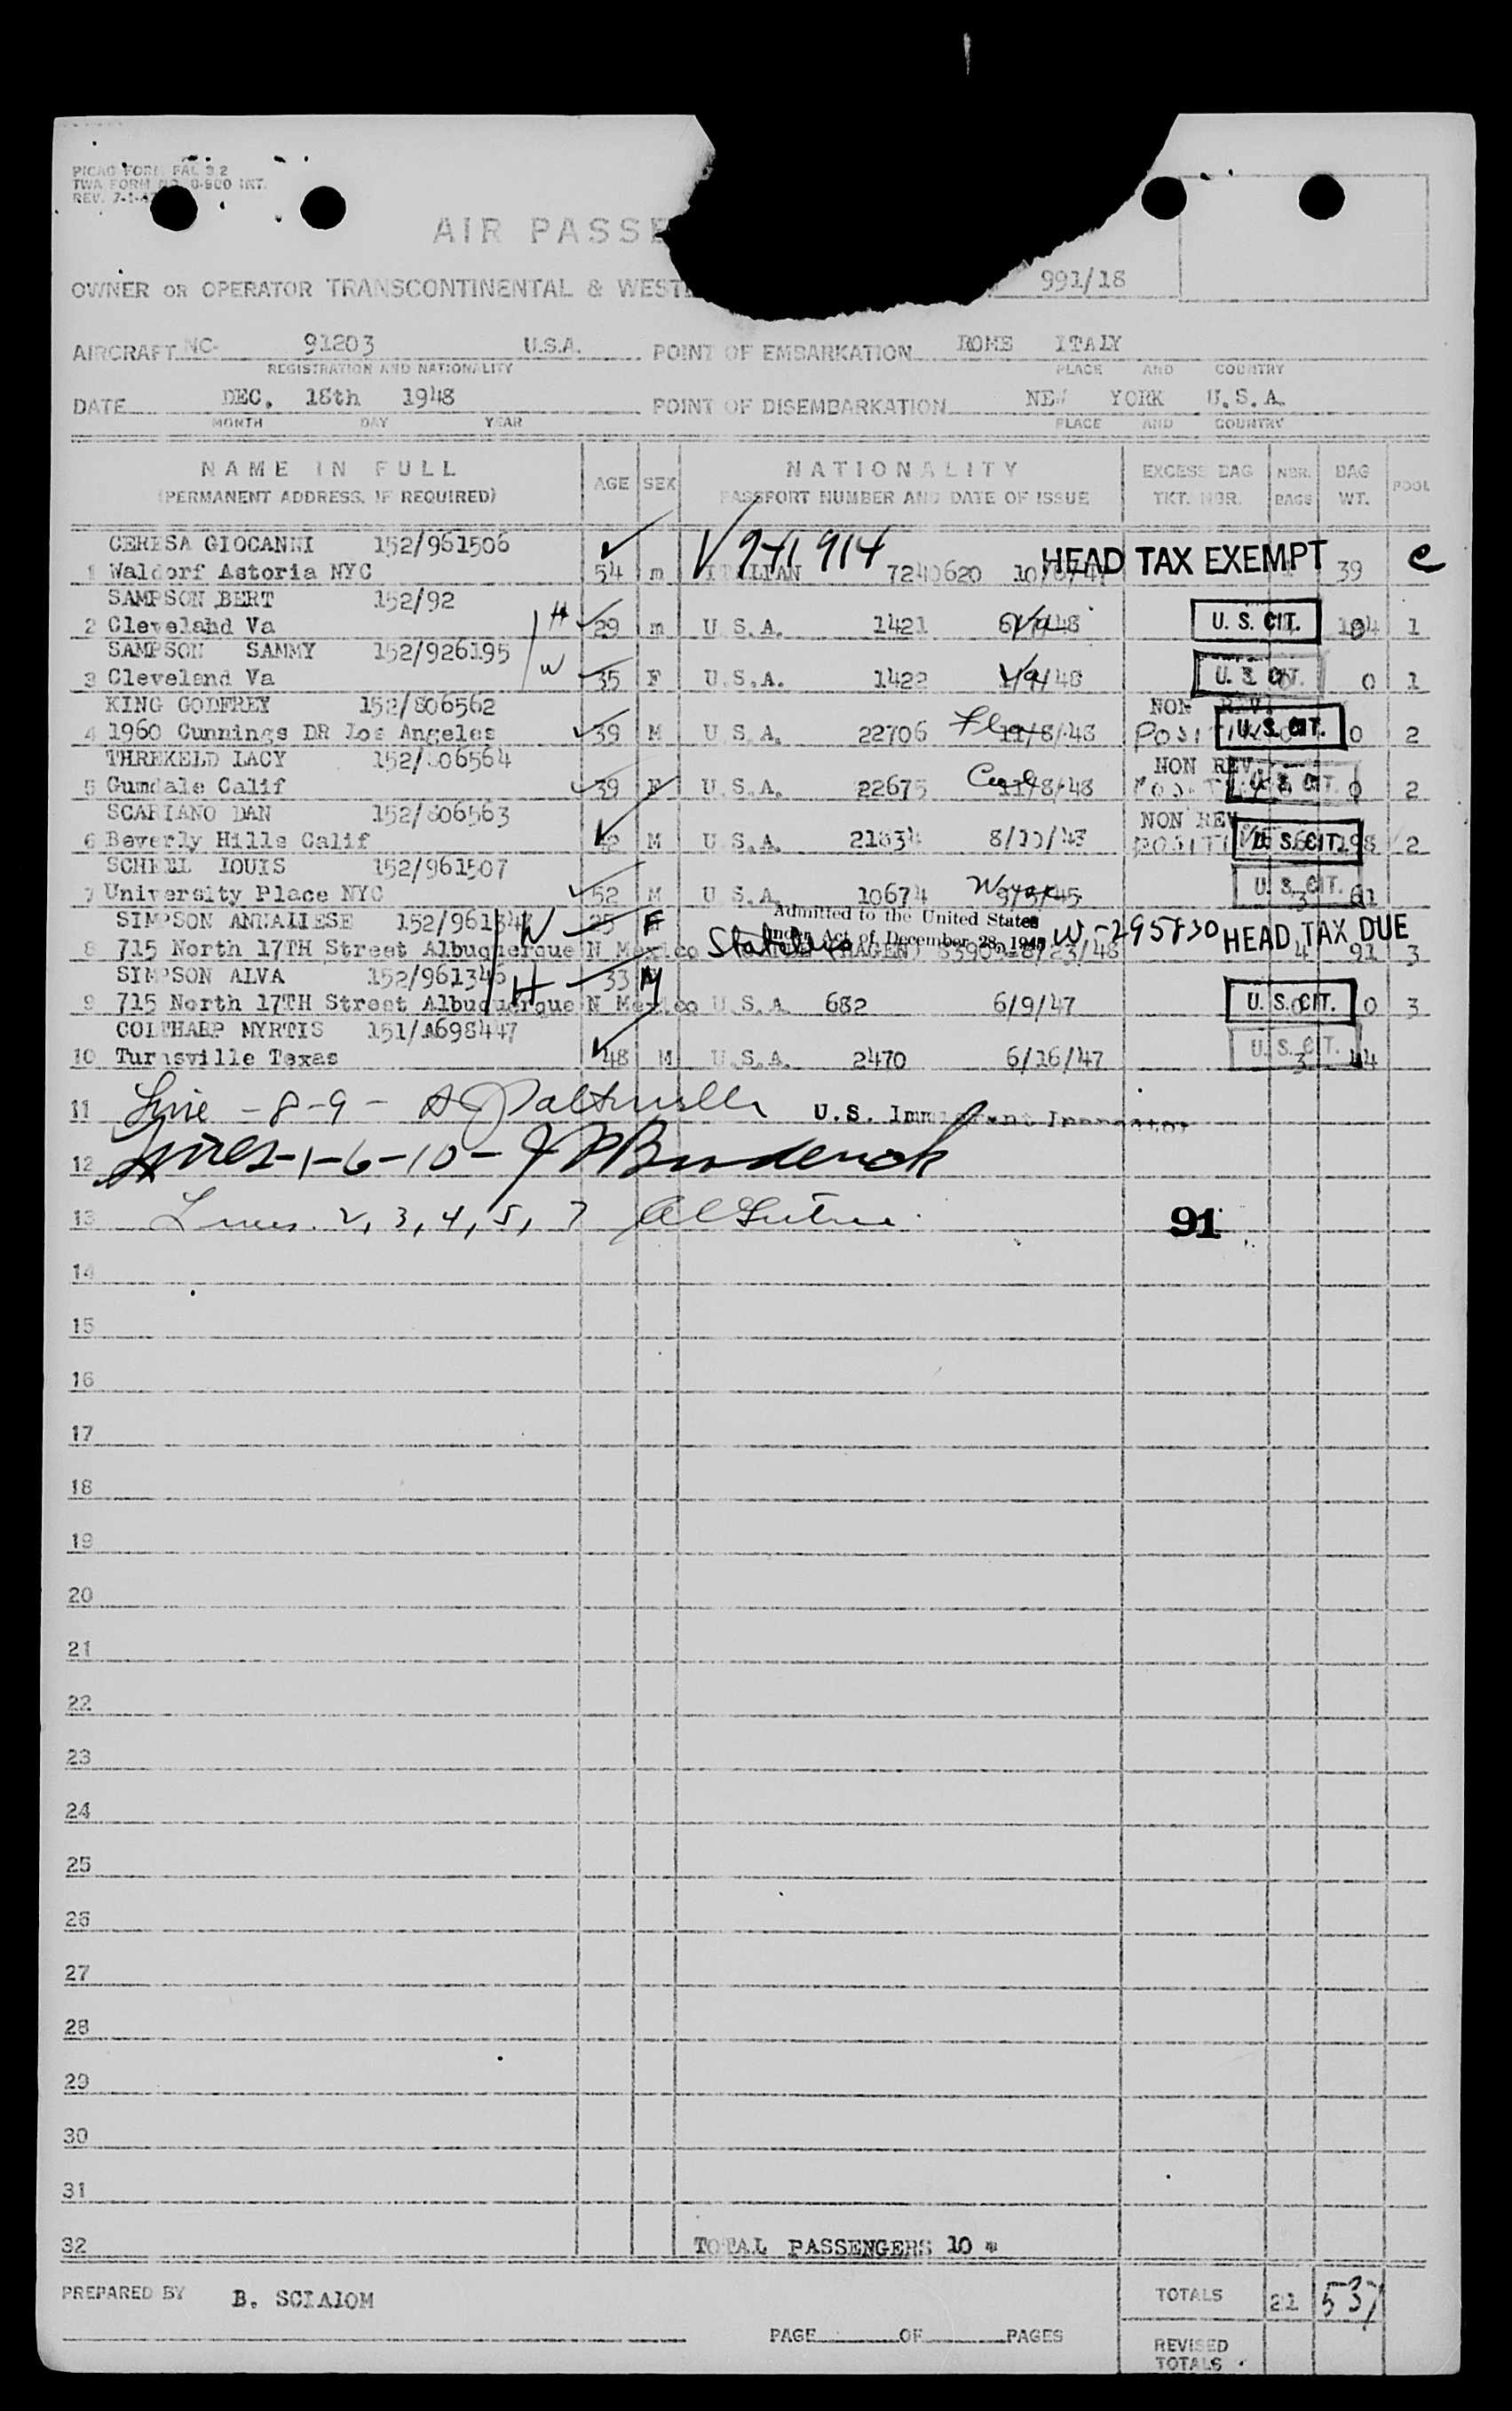 PICAO FORM FAL 3.2
TWA FORM NO. 0-900 INT.
REV. 7-1-47
AIR PASSE
OWNER OR OPERATOR TRANSCONTINENTAL & WEST 991/18
AIRCRAFT NC- 91203 U.S.A. POINT OF EMBARKATION ROME ITALY
REGISTRATION AND NATIONALITY PLACE AND COUNTRY
DATE DEC. 18th 1948 POINT OF DISEMBARKATION NEW YORK U.S.A.
MONTH DAY YEAR PLACE AND COUNTRY
NAME IN FULL AGE SEX NATIONALITY EXCESS BAG NBR. BAG POOL
(PERMANENT ADDRESS, IF REQUIRED) PASSPORT NUMBER AND DATE OF ISSUE TKT. NBR. BAGS WT.
CERESA GIOCANNI 152/961506 V 941914 HEAD TAX EXEMPT
1 Waldorf Astoria NYC 54 m ITALIAN 7240620 39
SAMPSON BERT 152/92
2 Cleveland Va H 29 m U.S.A. 1421 U. S. CIT. 1
SAMPSON SAMMY 152/926195
3 Cleveland Va W 35 F U.S.A. 1422 1/9/48 U. S. CIT. 0 1
KING GODFREY 152/806562 NON REV.
4 1960 Cunnings DR Los Angeles 39 M U.S.A. 22706 11/8/48 U. S. CIT. 0 2
THREKELD LACY 152/806564 NON REV.
5 Gumdale Calif 39 F U.S.A. 22675 11/8/48 U. S. CIT. 0 2
SCARIANO DAN 152/806563 NON REV.
6 Beverly Hills Calif 42 M U.S.A. 21834 8/10/48 U. S. CIT. 198 2
SCHELL LOUIS 152/961507
7 University Place NYC 52 M U.S.A. 10674 U. S. CIT. 3 61
SIMPSON ANNALIESE W 25 F Admitted to the United States
8 715 North 17TH Street Albuquerque N Mexico Stateless under Act of December 28, 1945 (HAGEN) 8/23/48 W-295830 HEAD TAX DUE 4 91 3
SIMPSON ALVA 152/961346
9 715 North 17TH Street Albuquerque N Mexico H 33 M U.S.A. 682 6/9/47 U. S. CIT. 0 3
COLTHARP MYRTIS 151/A698447
10 Turnsville Texas 48 M U.S.A. 2470 6/16/47 U. S. CIT. 3 44
11 Line - 8-9 - U.S. Immigrant Inspector
12 Lines-1-6-10- J P Broderick
13 Lines 2, 3, 4, 5, 7 91
14
15
16
17
18
19
20
21
22
23
24
25
26
27
28
29
30
31
32 TOTAL PASSENGERS 10 *
PREPARED BY B. SCIALOM TOTALS 21 537
PAGE OF PAGES REVISED
TOTALS